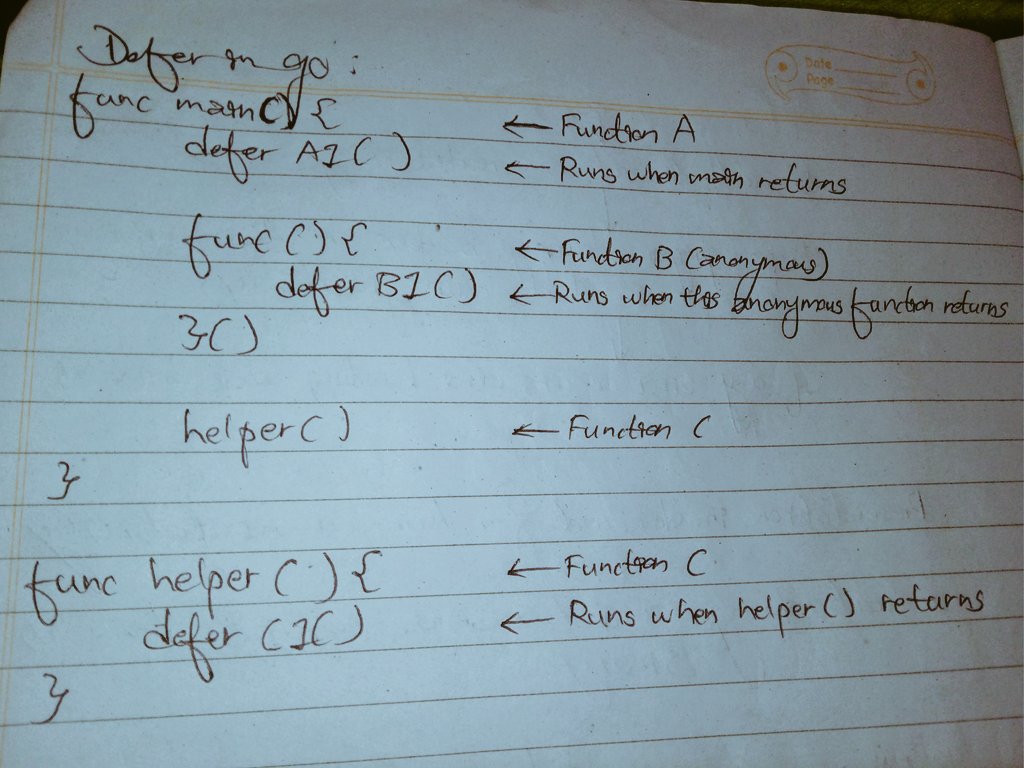 Defer in go :
func main() { ← Function A
defer A1() ← Runs when main returns
func () { ← Function B (anonymous)
defer B1() ← Runs when this anonymous function returns
}()
helper() ← Function C
}
func helper() { ← Function C
defer C1() ← Runs when helper() returns
}
Date
Page